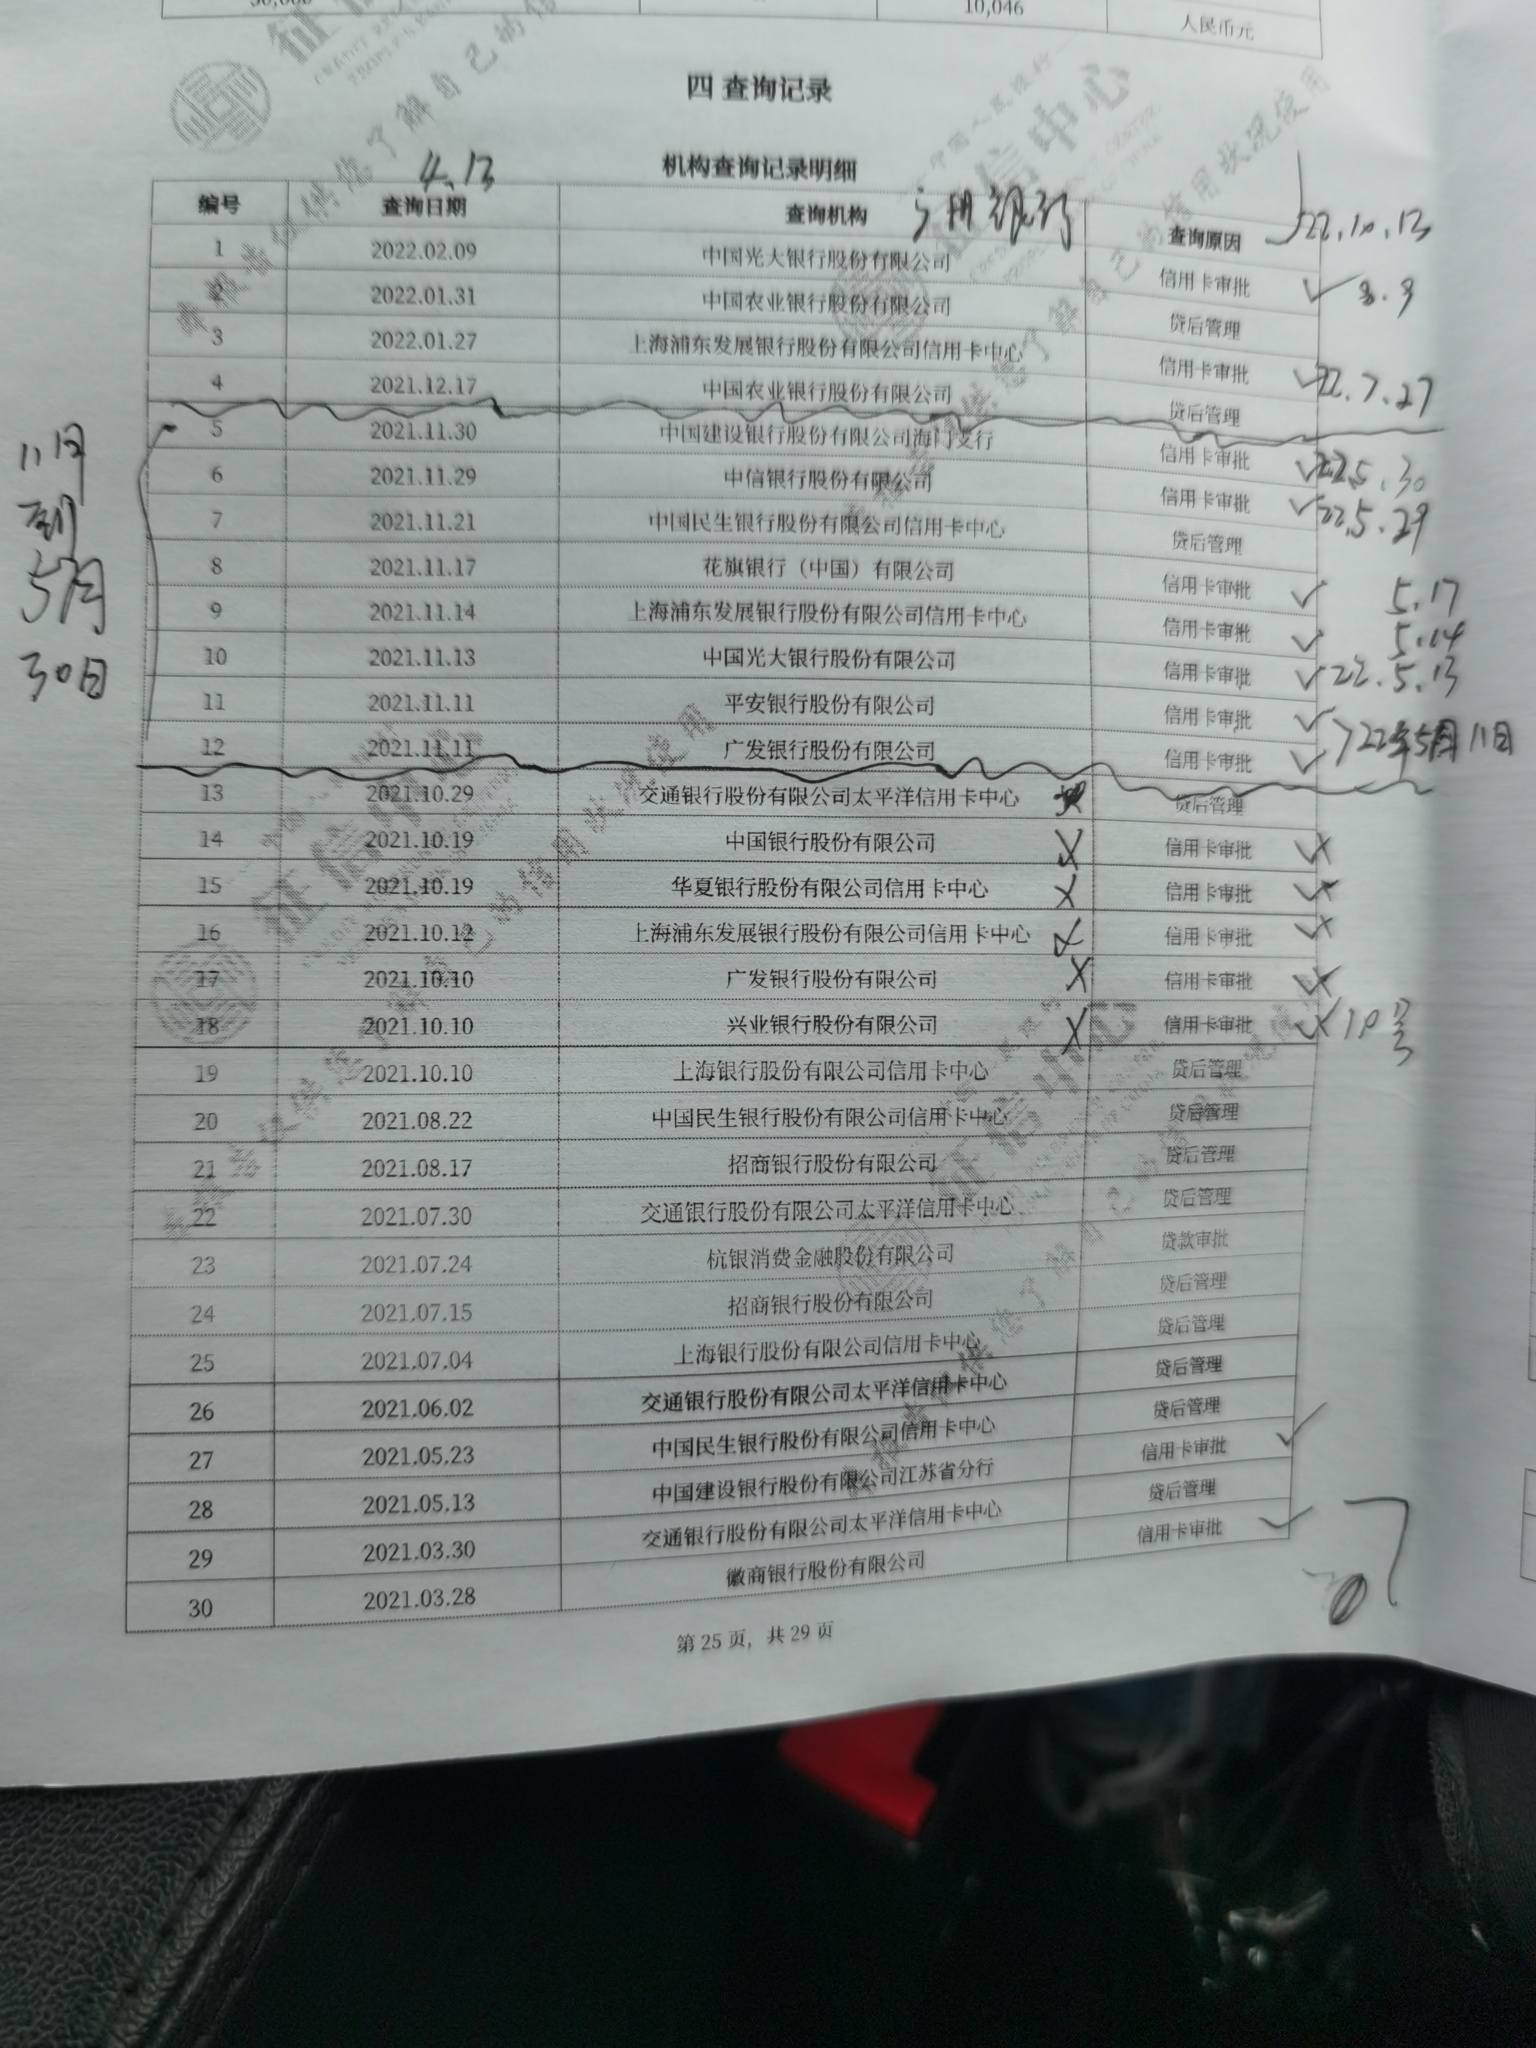 10,046 人民币元
四 查询记录
4.13
机构查询记录明细
编号 查询日期 查询机构 查询原因
银行 22.10.13
1 2022.02.09 中国光大银行股份有限公司 信用卡审批 ✓ 8.9
2 2022.01.31 中国农业银行股份有限公司 贷后管理
3 2022.01.27 上海浦东发展银行股份有限公司信用卡中心 信用卡审批 ✓ 22.7.27
4 2021.12.17 中国农业银行股份有限公司 贷后管理
5 2021.11.30 中国建设银行股份有限公司海门支行 信用卡审批 ✓ 22.5.30
6 2021.11.29 中信银行股份有限公司 信用卡审批 ✓ 22.5.29
7 2021.11.21 中国民生银行股份有限公司信用卡中心 贷后管理
8 2021.11.17 花旗银行（中国）有限公司 信用卡审批 ✓ 5.17
9 2021.11.14 上海浦东发展银行股份有限公司信用卡中心 信用卡审批 ✓ 5.14
10 2021.11.13 中国光大银行股份有限公司 信用卡审批 ✓ 22.5.13
11 2021.11.11 平安银行股份有限公司 信用卡审批 ✓
12 2021.11.11 广发银行股份有限公司 信用卡审批 ✓ 22年5月11日
11月
到
5月
30日
13 2021.10.29 交通银行股份有限公司太平洋信用卡中心 贷后管理
14 2021.10.19 中国银行股份有限公司 信用卡审批
15 2021.10.19 华夏银行股份有限公司信用卡中心 信用卡审批
16 2021.10.12 上海浦东发展银行股份有限公司信用卡中心 信用卡审批
17 2021.10.10 广发银行股份有限公司 信用卡审批
18 2021.10.10 兴业银行股份有限公司 信用卡审批 10号
19 2021.10.10 上海银行股份有限公司信用卡中心 贷后管理
20 2021.08.22 中国民生银行股份有限公司信用卡中心 贷后管理
21 2021.08.17 招商银行股份有限公司 贷后管理
22 2021.07.30 交通银行股份有限公司太平洋信用卡中心 贷后管理
23 2021.07.24 杭银消费金融股份有限公司 贷款审批
24 2021.07.15 招商银行股份有限公司 贷后管理
25 2021.07.04 上海银行股份有限公司信用卡中心 贷后管理
26 2021.06.02 交通银行股份有限公司太平洋信用卡中心 贷后管理
27 2021.05.23 中国民生银行股份有限公司信用卡中心 贷后管理
28 2021.05.13 中国建设银行股份有限公司江苏省分行 信用卡审批 ✓
29 2021.03.30 交通银行股份有限公司太平洋信用卡中心 贷后管理
30 2021.03.28 徽商银行股份有限公司 信用卡审批 ✓
第 25 页，共 29 页